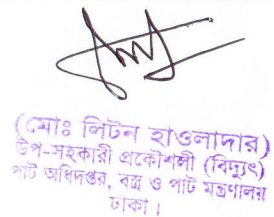 (মোঃ লিটন হাওলাদার)
উপ-সহকারী প্রকৌশলী (বিদ্যুৎ)
পাট অধিদপ্তর, বস্ত্র ও পাট মন্ত্রণালয়
ঢাকা।